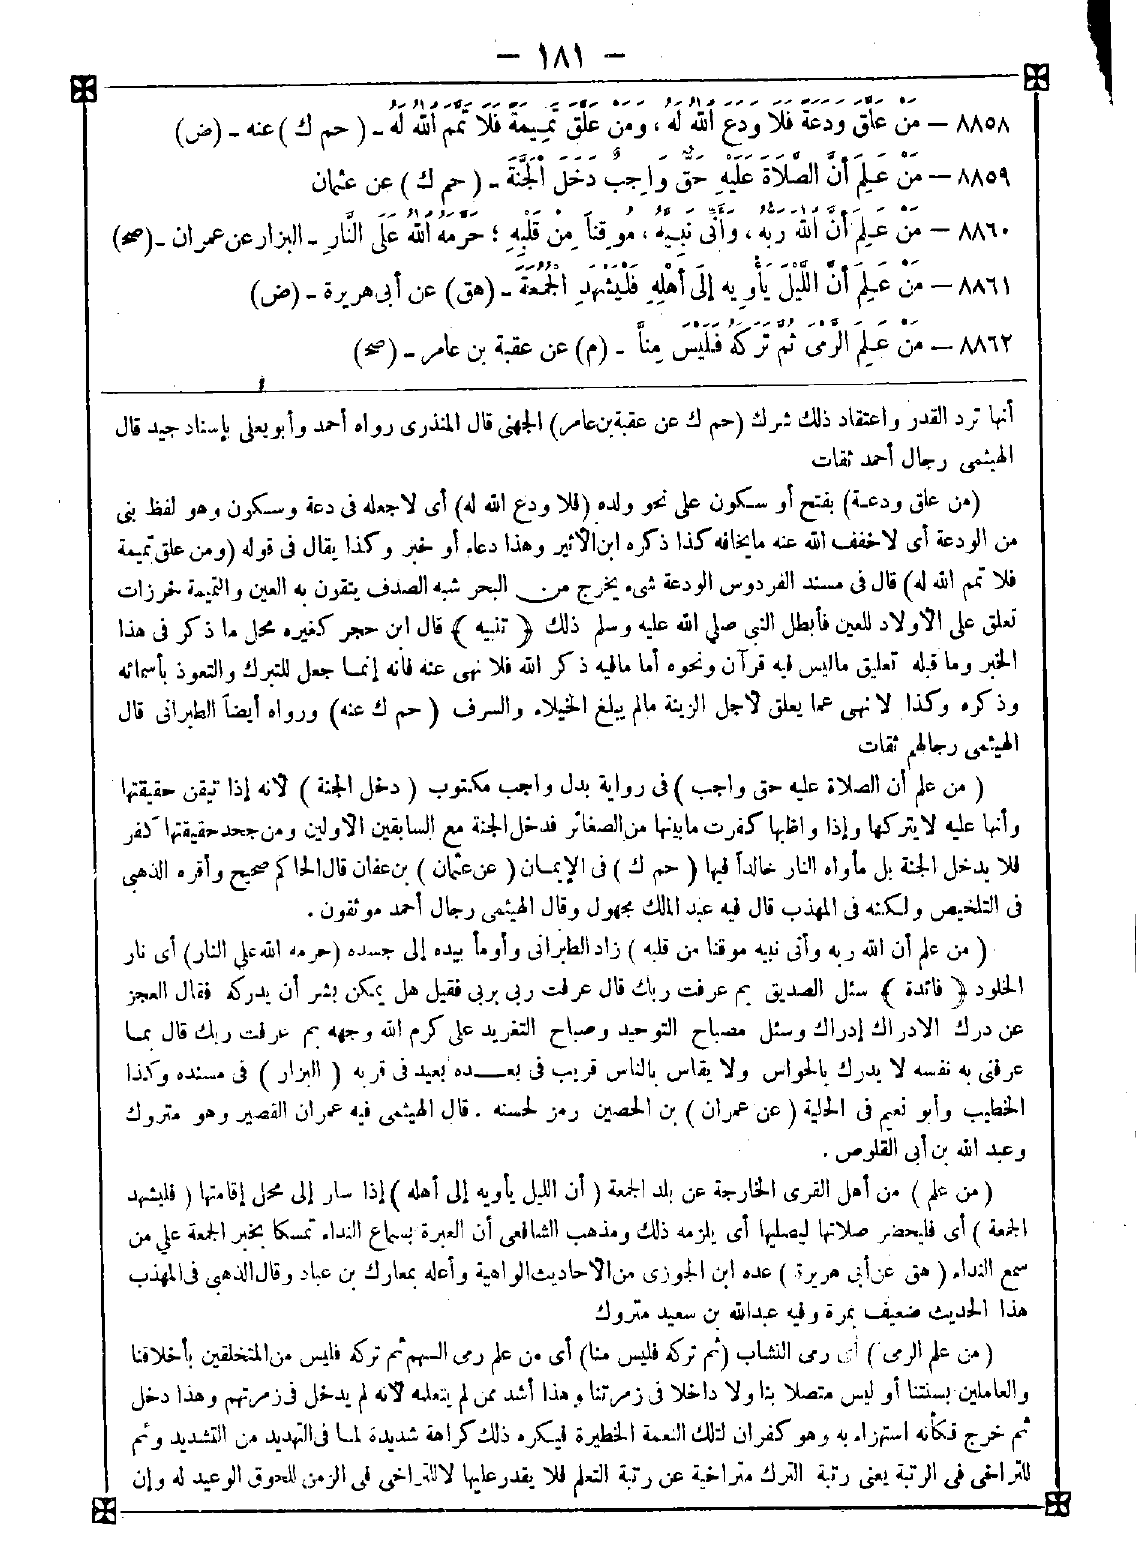 – ١٨١ –
٨٨٥٨ – مَنْ عَلَّقَ وَدَعَةً فَلَا وَدَعَ اللهُ لَهُ ، وَمَنْ عَلَّقَ تَمِيمَةً فَلَا تَمَّمَ اللهُ لَهُ - ( حم ك ) عنه - (ض)
٨٨٥٩ – مَنْ عَلِمَ أَنَّ الصَّلَاةَ عَلَيْهِ حَقٌّ وَاجِبٌ دَخَلَ الْجَنَّةَ - ( حم ك ) عن عثمان
٨٨٦٠ – مَنْ عَلِمَ أَنَّ اللهَ رَبُّهُ ، وَأَنِّى نَبِيُّهُ ، مُوقِناً مِنْ قَلْبِهِ ؛ حَرَّمَهُ اللهُ عَلَى النَّارِ - البزار عن عمران - (صح)
٨٨٦١ – مَنْ عَلِمَ أَنَّ اللَّيْلَ يَأْوِيهِ إِلَى أَهْلِهِ فَلْيَشْهَدِ الْجُمُعَةَ - (هق) عن أبى هريرة - (ض)
٨٨٦٢ – مَنْ عَلِمَ الرَّمْىَ ثُمَّ تَرَكَهُ فَلَيْسَ مِنَّا - (م) عن عقبة بن عامر - (صح)
أنها ترد القدر واعتقاد ذلك شرك (حم ك عن عقبة بن عامر) الجهنى قال المنذرى رواه أحمد وأبو يعلى بإسناد جيد قال
الهيثمى رجال أحمد ثقات
(من علق ودعة) بفتح أو سكون على نحو ولده (فلا ودع الله له) أى لاجعله فى دعة وسكون وهو لفظ بنى
من الودعة أى لاخفف الله عنه مايخافه كذا ذكره ابن الأثير وهذا دعاء أو خبر وكذا يقال فى قوله (ومن علق تميمة
فلا تمم الله له) قال فى مسند الفردوس الودعة شىء يخرج من البحر شبه الصدف يتقون به العين والتميمة خرزات
تعلق على الأولاد للعين فأبطل النبي صلي الله عليه وسلم ذلك ﴿ تنبيه ﴾ قال ابن حجر كغيره محل ما ذكر فى هذا
الخبر وما قبله تعليق ماليس فيه قرآن ونحوه أما مافيه ذكر الله فلا نهى عنه فانه إنما جعل للتبرك والتعوذ بأسمائه
وذكره وكذا لانهى عما يعلق لاجل الزينة مالم يبلغ الخيلاء والسرف ( حم ك عنه) ورواه أيضاً الطبرانى قال
الهيثمى رجالهم ثقات
( من علم أن الصلاة عليه حق واجب ) فى رواية بدل واجب مكتوب ( دخل الجنة ) لأنه إذا تيقن حقيقتها
وأنها عليه لايتركها وإذا واظبها كفرت مابينها من الصغائر فدخل الجنة مع السابقين الأولين ومن جحد حقيقتها كفر
فلا يدخل الجنة بل مأواه النار خالداً فيها ( حم ك ) فى الإيمان ( عن عثمان ) بن عفان قال الحاكم صحيح وأقره الذهبى
فى التلخيص ولكنه فى المهذب قال فيه عبد المالك مجهول وقال الهيثمى رجال أحمد موثقون .
( من علم أن الله ربه وأنى نبيه موقنا من قلبه ) زاد الطبرانى وأومأ بيده إلى جسده (حرمه الله على النار) أى نار
الخلود ﴿ فائدة ﴾ سئل الصديق بم عرفت ربك قال عرفت ربى بربى فقيل هل يمكن بشر أن يدركه فقال العجز
عن درك الادراك إدراك وسئل مصباح التوحيد وصباح التغريد على كرم الله وجهه بم عرفت ربك قال بما
عرفنى به نفسه لا يدرك بالحواس ولا يقاس بالناس قريب فى بعـــده بعيد فى قربه ( البزار ) فى مسنده وكذا
الخطيب وأبو نعيم فى الحلية ( عن عمران ) بن الحصين رمز لحسنه . قال الهيثمى فيه عمران القصير وهو متروك
وعبد الله بن أبى القلوص .
( من علم ) من أهل القرى الخارجة عن بلد الجمعة ( أن الليل يأويه إلى أهله ) إذا سار إلى محل إقامتها ( فليشهد
الجمعة ) أى فليحضر صلاتها ليصليها أى يلزمه ذلك ومذهب الشافعى أن العبرة بسماع النداء تمسكا بخبر الجمعة علي من
سمع النداء ( هق عن أبى هريرة ) عده ابن الجوزى من الأحاديث الواهية وأعله بمعارك بن عباد وقال الذهبى فى المهذب
هذا الحديث ضعيف بمرة وفيه عبدالله بن سعيد متروك
( من علم الرمى ) أى رمى النشاب (ثم تركه فليس منا) أى من علم رمى السهم ثم تركه فليس من المتخلقين بأخلاقنا
والعاملين بسنتنا أو ليس متصلا بنا ولا داخلا فى زمرتنا وهذا أشد ممن لم يتعلمه لأنه لم يدخل فى زمرتهم وهذا دخل
ثم خرج فكأنه استهزاء به وهو كفران لتلك النعمة الخطيرة فيكره ذلك كراهة شديدة لما فى التهديد من التشديد وثم
للتراخى فى الرتبة يعنى رتبة الترك متراخية عن رتبة التعلم فلا يقدر عليها لاللتراخى فى الزمن للحوق الوعيد له وإن